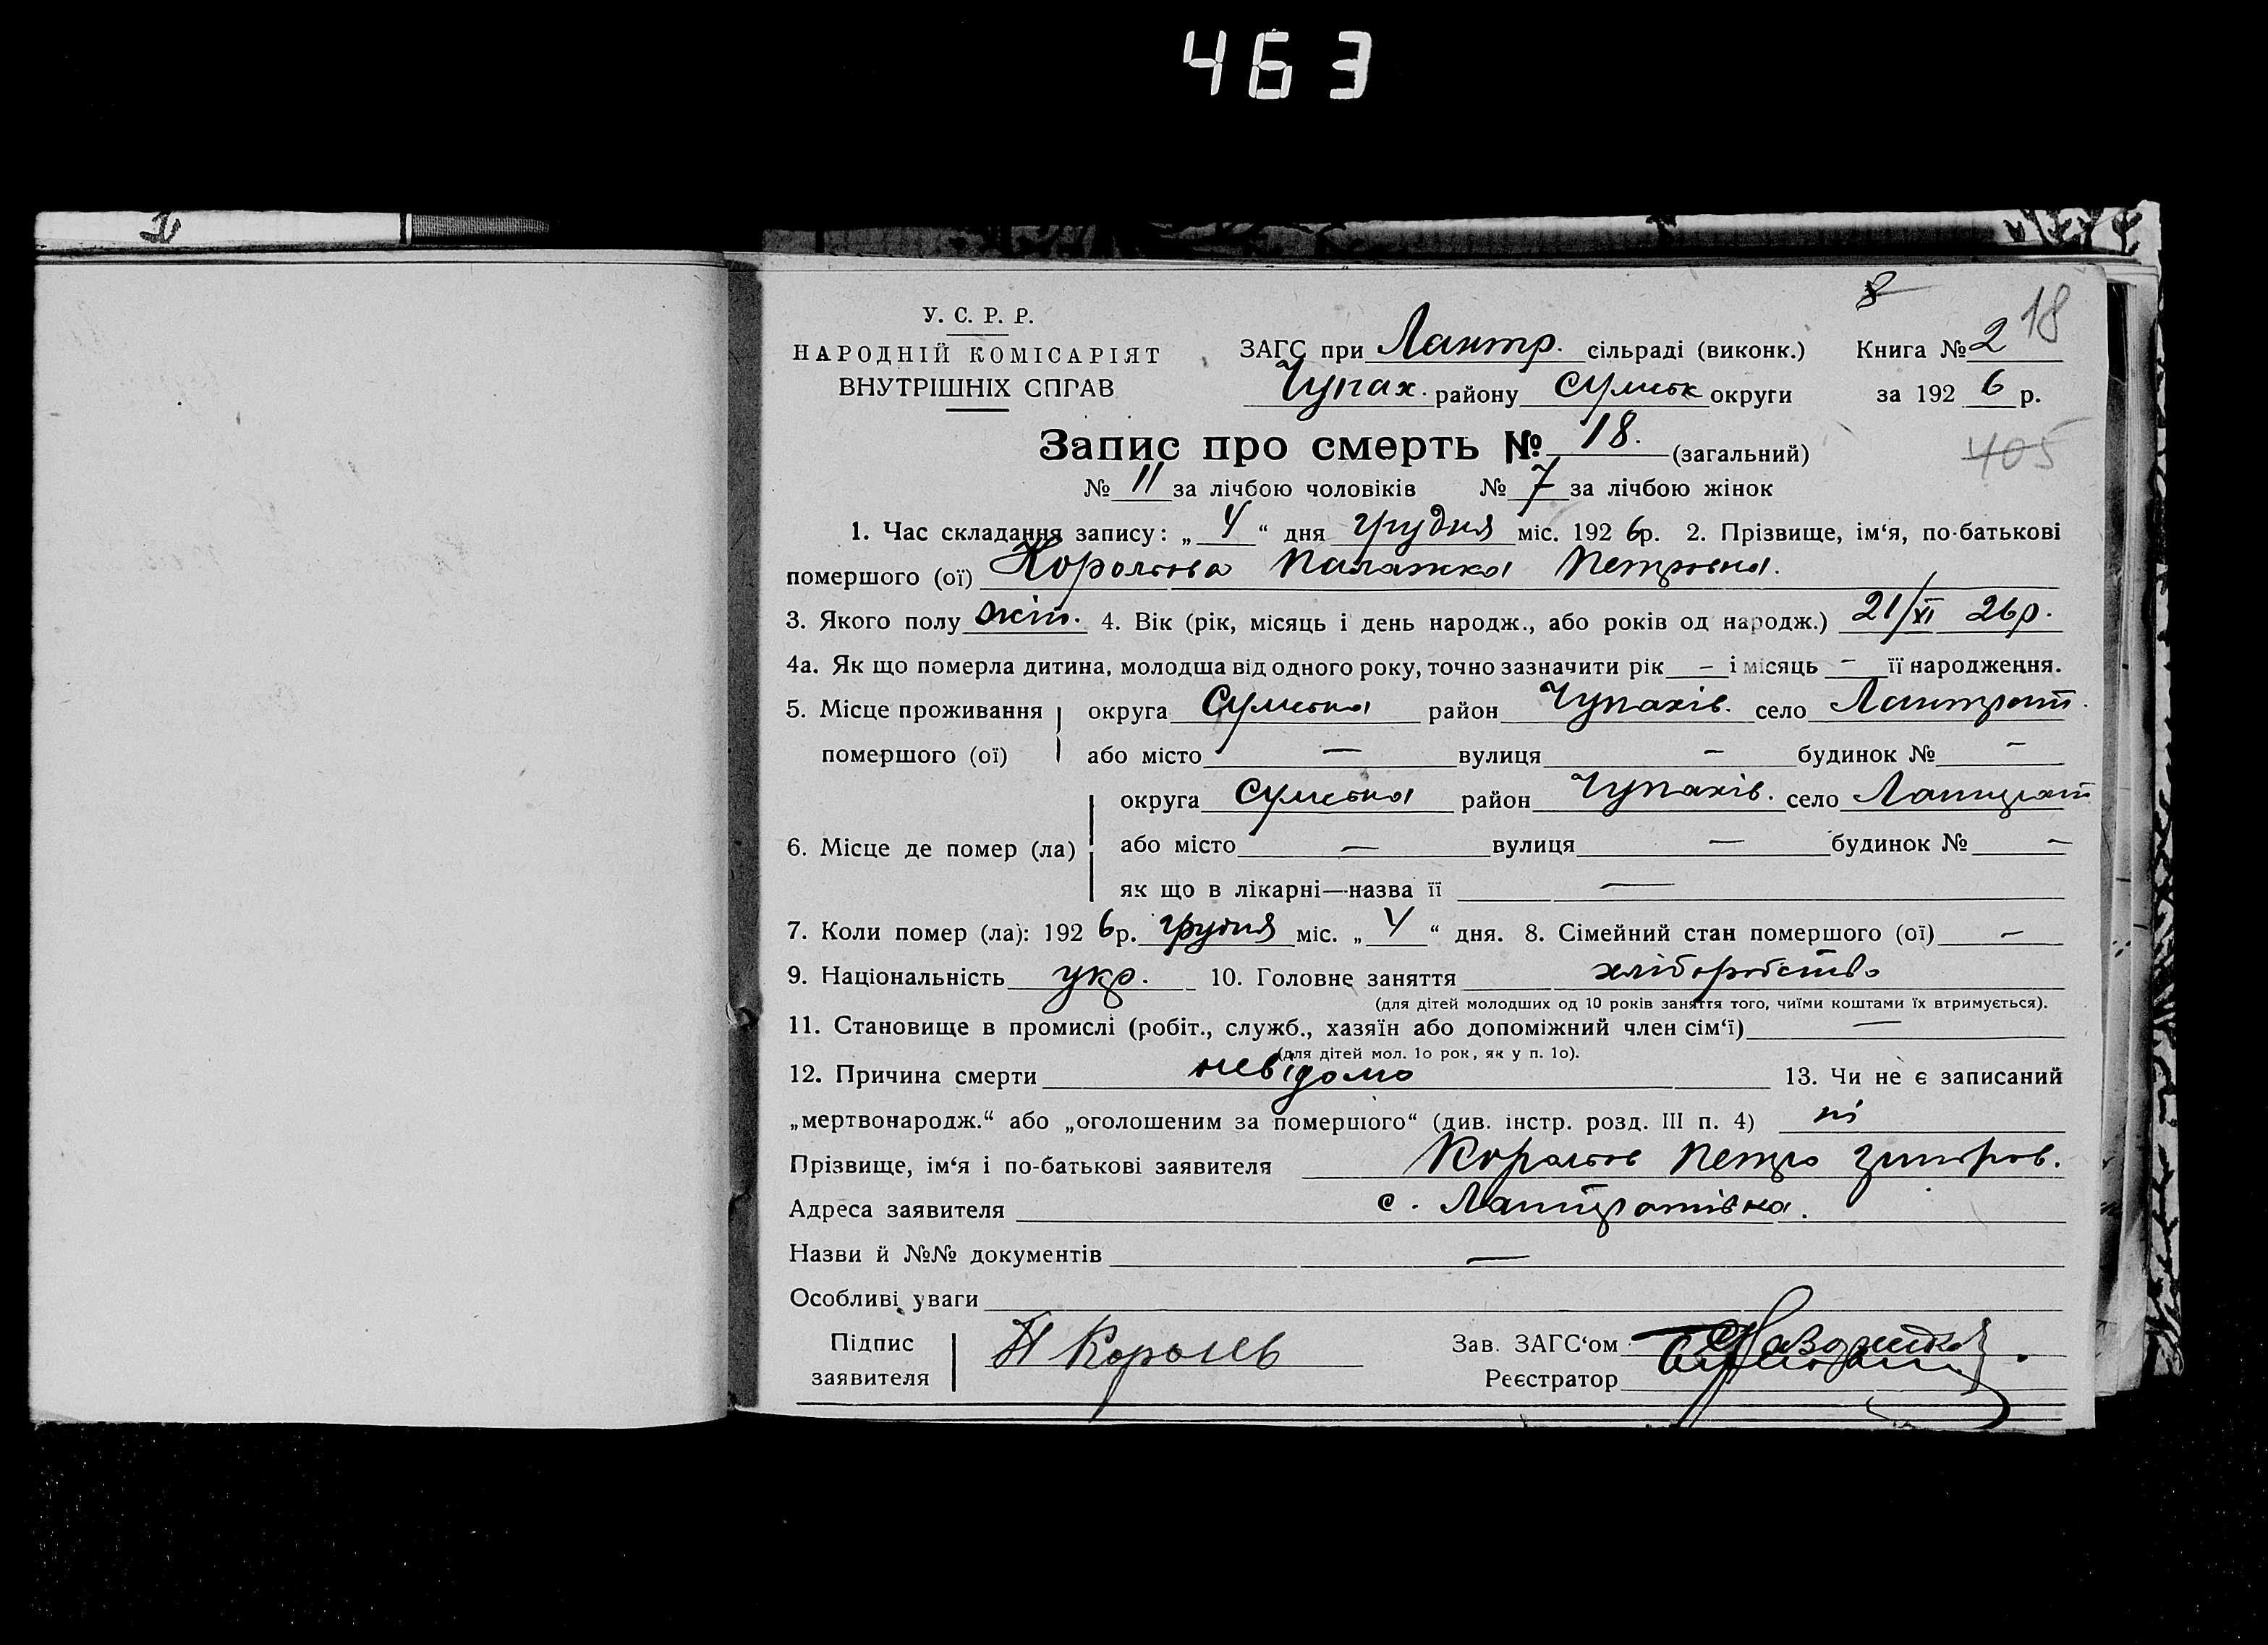 463
8
18
У. С. Р. Р.
НАРОДНІЙ КОМІСАРІЯТ
ВНУТРІШНІХ СПРАВ
ЗАГС при Лантр. сільраді (виконк.) Книга № 2
Чупах. району Сумськ округи за 192 6 р.
405
Запис про смерть № 18. (загальний)
№ 11 за лічбою чоловіків № 7 за лічбою жінок
1. Час складання запису: „ 4 “ дня грудня міс. 192 6р. 2. Прізвище, ім‘я, по-батькові
помершого (ої) Корольова Палажка Петровна.
3. Якого полу жін. 4. Вік (рік, місяць і день народж., або років од народж.) 21/XI 26р.
4а. Як що померла дитина, молодша від одного року, точно зазначити рік – і місяць – її народження.
5. Місце проживання округа Сумська район Чупахів. село Лантрат.
помершого (ої) або місто — вулиця – будинок № –
округа Сумська район Чупахів. село Лантрат
6. Місце де помер (ла) або місто — вулиця — будинок № –
як що в лікарні—назва її —
7. Коли помер (ла): 192 6р. грудня міс. „ 4 “ дня. 8. Сімейний стан помершого (ої) –
9. Національність укр. 10. Головне заняття хліборобство
(для дітей молодших од 10 років заняття того, чиїми коштами їх втримується).
11. Становище в промислі (робіт., служб., хазяїн або допоміжний член сім‘ї) —
(для дітей мол. 1о рок, як у п. 1о).
12. Причина смерти невідомо 13. Чи не є записаний
„мертвонародж.“ або „оголошеним за помершого“ (див. інстр. розд. III п. 4) ні
Прізвище, ім‘я і по-батькові заявителя Корольов Петро Дмитров.
Адреса заявителя с. Лантратівка.
Назви й №№ документів —
Особливі уваги
Підпис заявителя П Королев
Зав. ЗАГС‘ом
Реєстратор